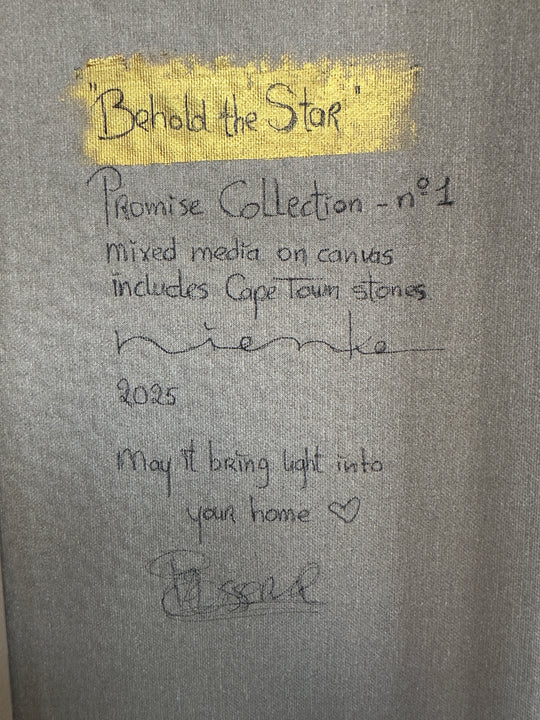 "Behold the Star"
Promise Collection - nº1
mixed media on canvas
includes Cape Town stones
nienke
2025
May it bring light into
your home ♡